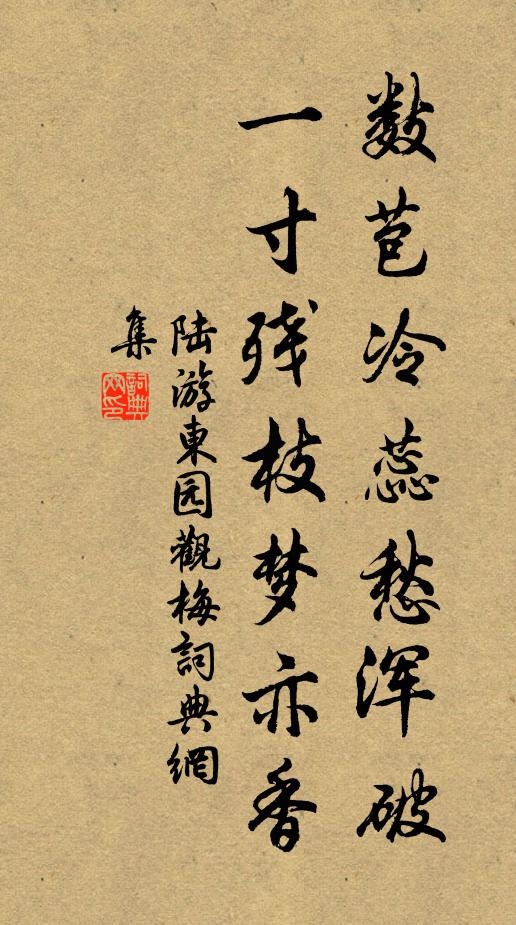 数苞冷蕊愁浑破
一寸残枝梦亦香
陆游東园觀梅詞典網
集
詞典網印